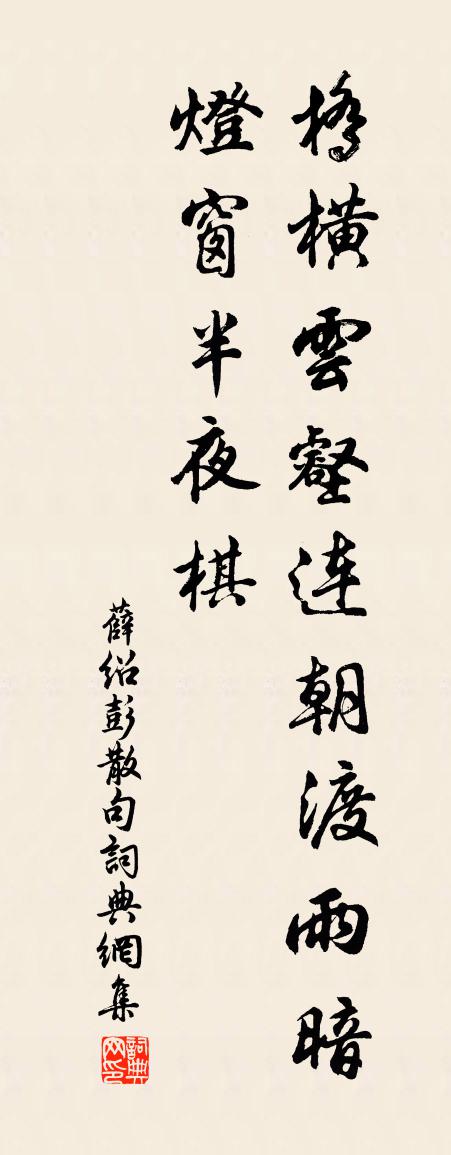 橋橫雲壑連朝渡雨暗
燈窗半夜棋
薛紹彭散句詞典網集
詞典网印